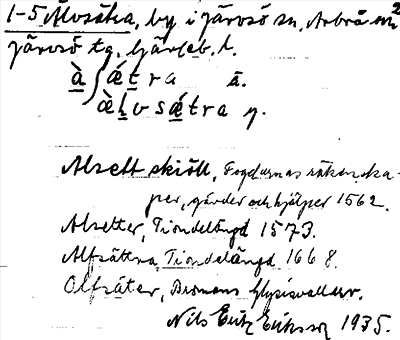 1-5 Älvsätra, by i Järvsö sn, Arbrå m 2
Järvsö tg. Gävleb. l.
à ʃ ǽ t r a ä.
æ̀ l v s ǽ t r a y.
Alsett skiöll, Fogdarnas räkenska-
per, gärder och hjälper 1562.
Alsetter, Tiondelängd 1573.
Alfsättra, Tiondelängd 1668.
Olfsäter, Bromans Glysisvallur.
Nils Eriksson 1935.